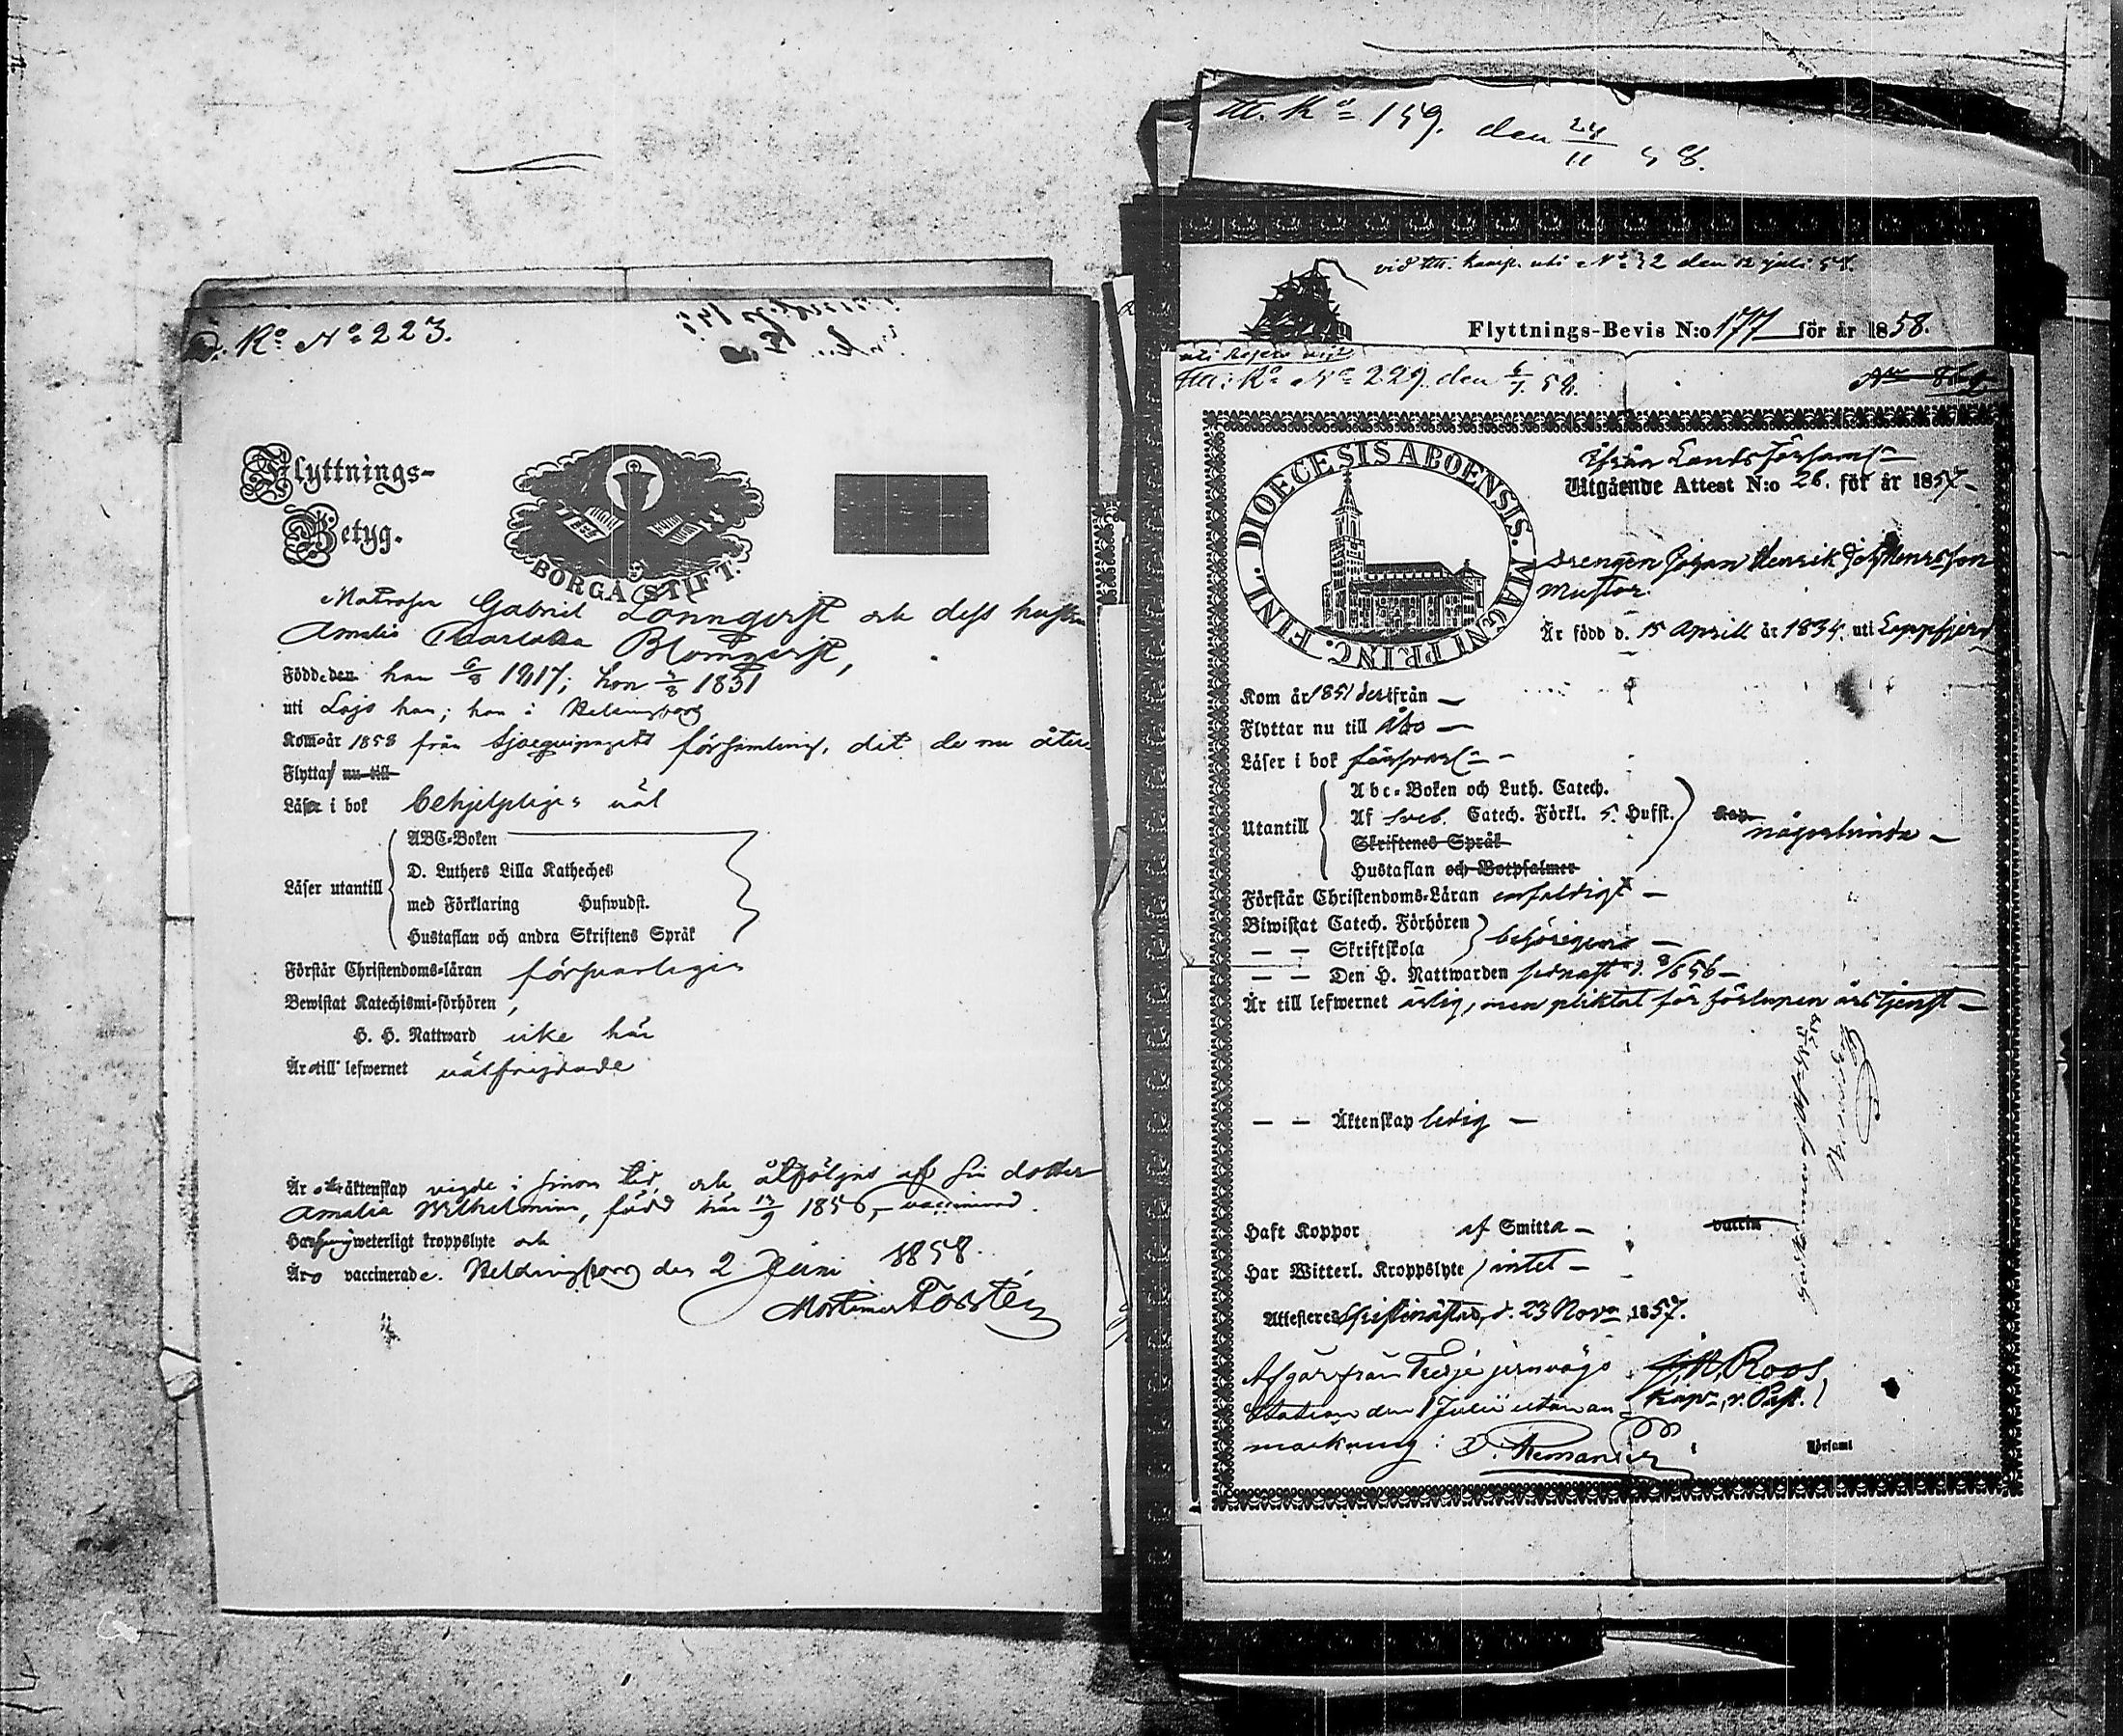 K° N° 223.
Flyttnings-
Betyg.
BORGÅ STIFT.
Matrosen Gabriel Lönnqvist och dess hustru
Amalia Charlotta Blomqvist,
Född den han 6/8 1817; hon 5/8 1831
uti Lojo han; hon i Helsingfors
Kom år 1858 från Sjöequipagets församling, dit de nu åter
Flytta nu till
Läser i bok behjelpligen väl
ABC-Boken
D. Luthers Lilla Katheches
Läser utantill
med Förklaring Hufwudst.
Hustaflan och andra Skriftens Språk
Förstår Christendoms-läran försvarligen
Bewistat Katechismi-förhören,
H. H. Nattward icke här
Äro till lefwernet välfrejdade
Är äktenskap vigde i sinom tid, och åtföljas af sin dotter
Amalia Wilhelmina, född här 13/9 1856, vaccinerad.
weterligt kroppslyte och
Äro vaccinerade. Helsingfors den 2 Juni 1858.
Mortimer Forstén
K° 159. den 24/11 58.
vid N° 32 den 12 juli 58.
Flyttnings-Bevis N:o 177 för år 1858.
K° N° 229. den 6/7 58.
DIOECESIS ABOENSIS. MAGNI PRINC. FINL.
Ifrån Lands Församl.
Utgående Attest N:o 26. för år 1857
Drengen Johan Henrik Joh Henrsson
Är född d. 15 Aprill år 1834. uti Lappfjerd
Kom år 1851 derifrån
Flyttar nu till Åbo
Läser i bok försvarl.
Abc-Boken och Luth. Catech.
Utantill Af Sveb. Catech. Förkl. 5. Hufst. någorlunda
Skriftenes Språk
Hustaflan och Botpsalmer
Förstår Christendoms-Läran enfaldigt
Biwistat Catech. Förhören
— — Skriftskola behörigen
— — Den H. Nattwarden sednast d. 8/6 56
Är till lefwernet ärlig, men pliktat för förlupen årstjenst
— — Äktenskap ledig
Haft Koppor af Smitta vaccin
Har Witterl. Kroppslyte intet
Attesteres Christinæstad, d. 23 Nov. 1857.
Afgår från Terje jernvägs Roos,
Station den 1 Julii utan an Kap., v. Past.
märkning: Remander
Församl